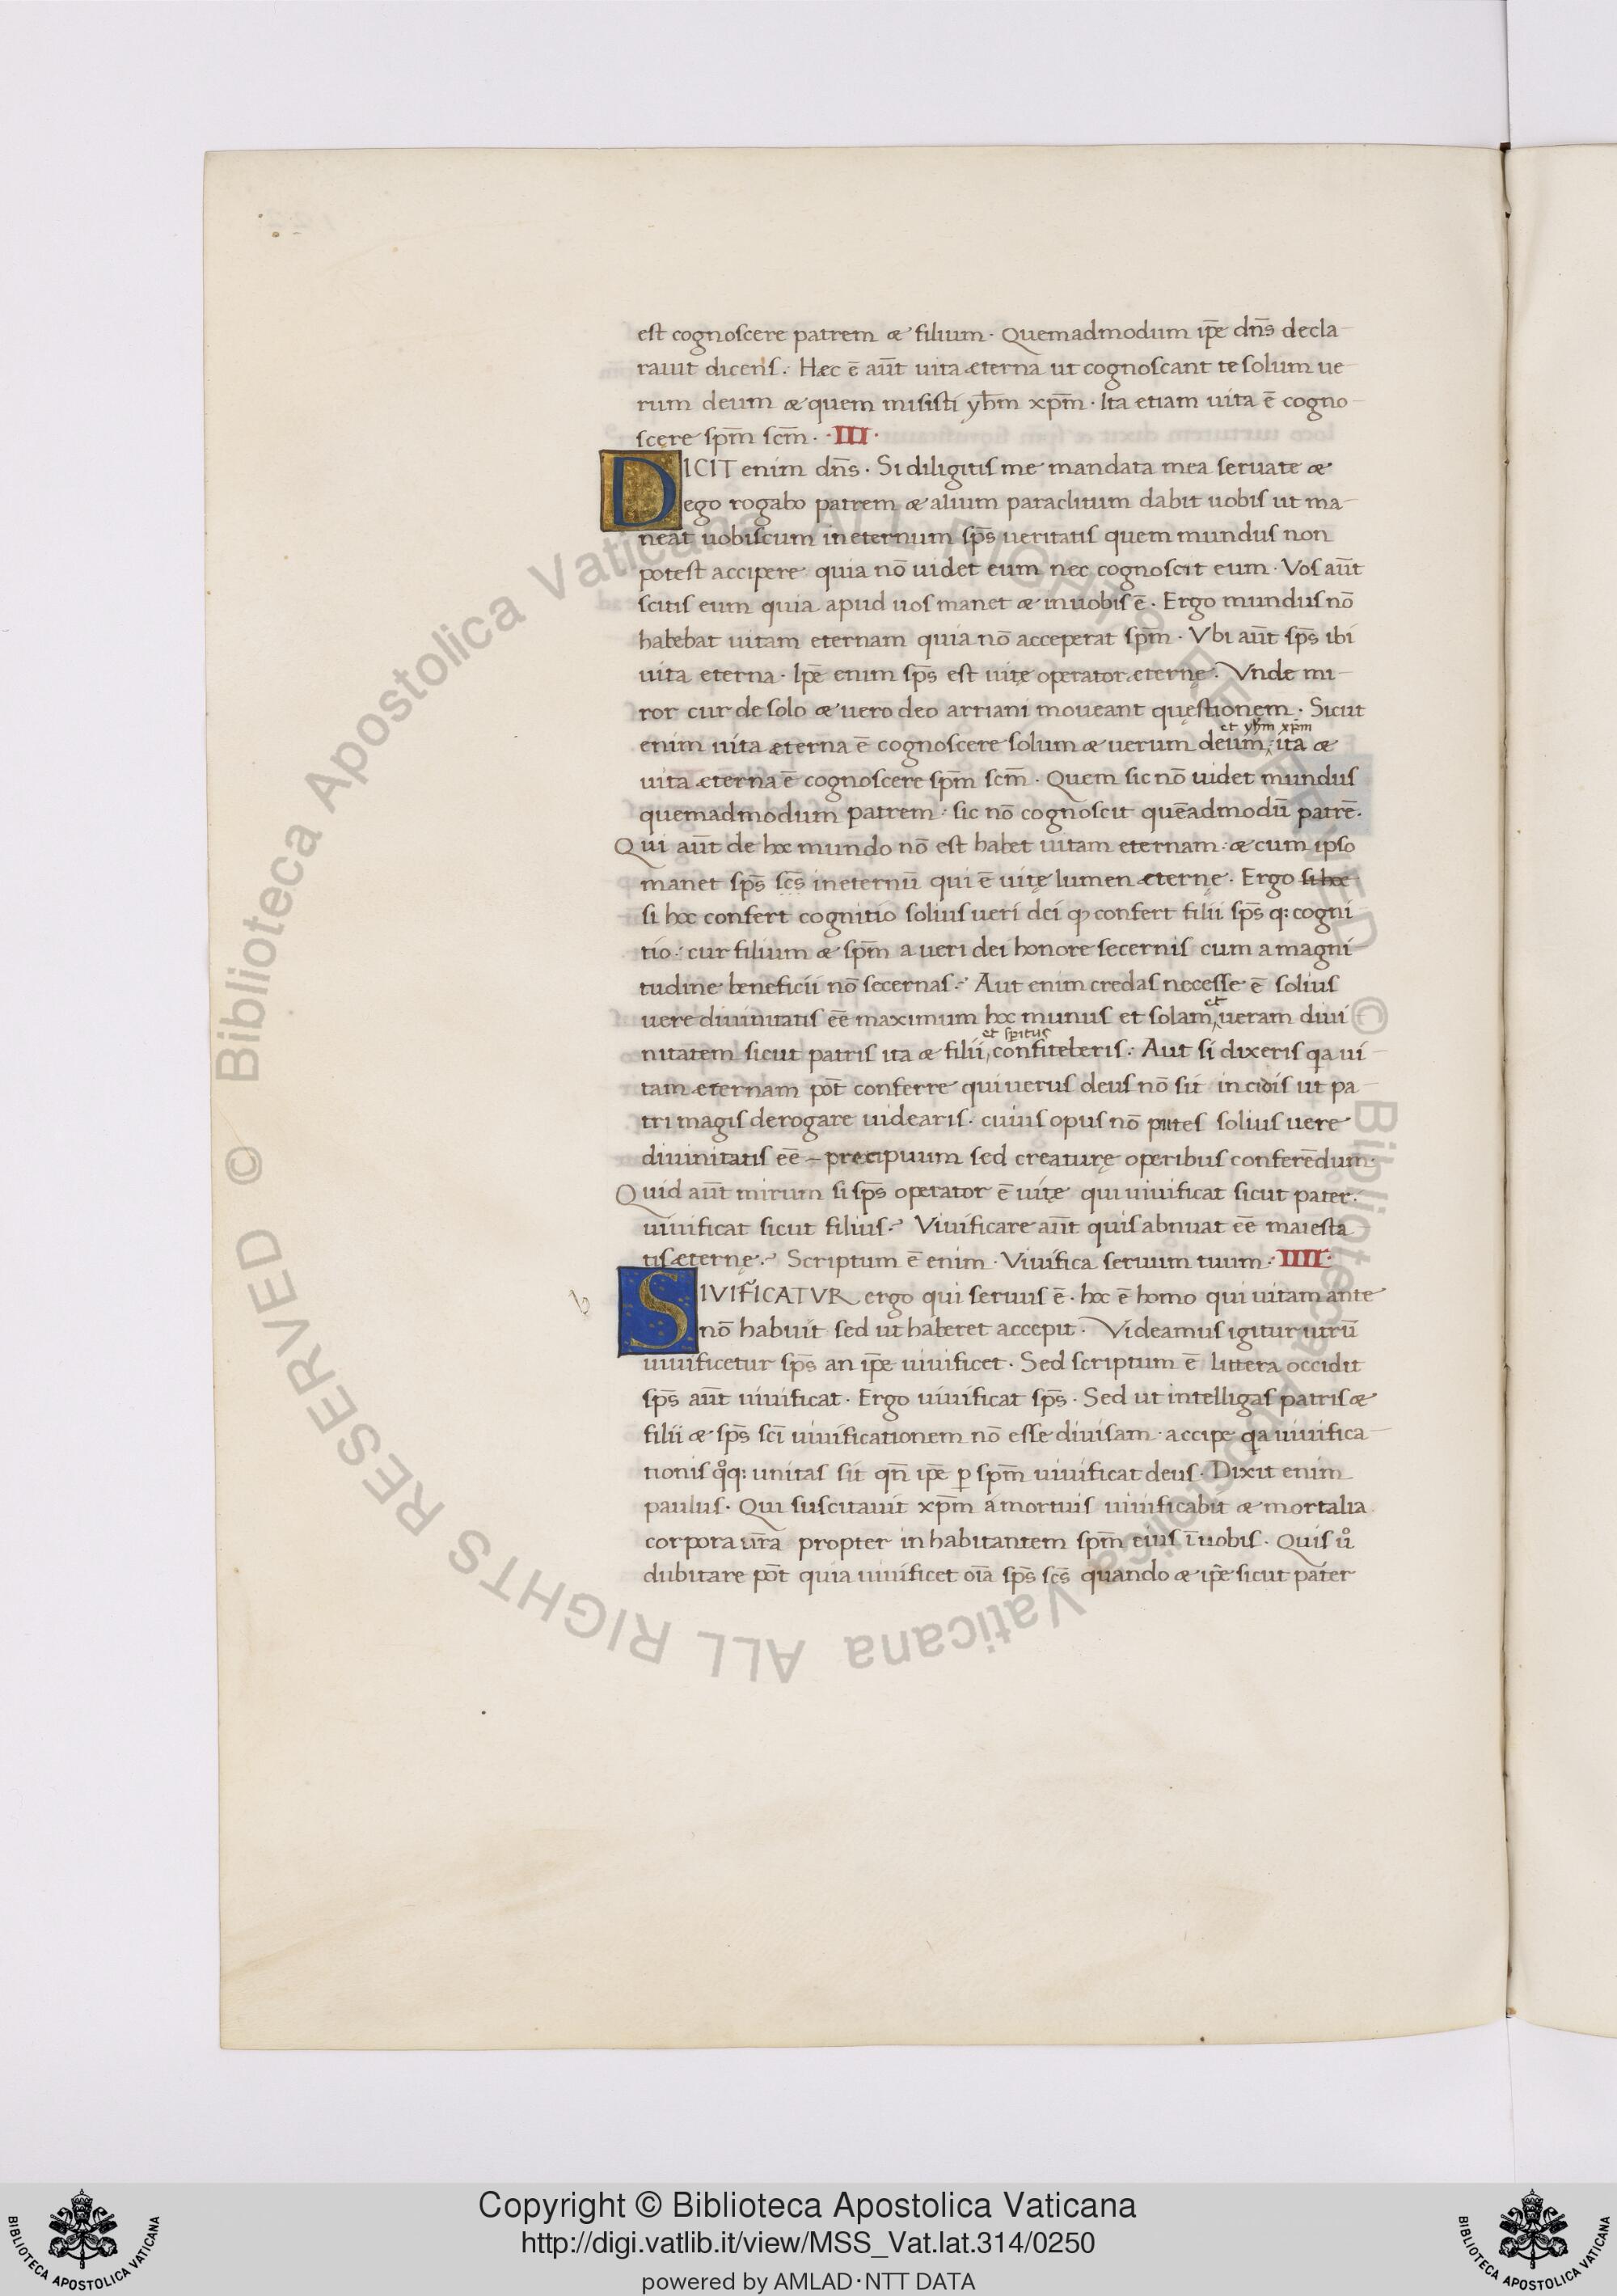 est cognoscere patrem & filium. Quemadmodum ip̄e dn̄s decla
rauit dicens. Hæc ē aūt uita æterna ut cognoscant te solum ue
rum deum & quem misisti yh̄m xp̄m. Ita etiam uita ē cogno
scere sp̄m sc̄m. III.
DICIT enim dn̄s. Si diligitis me mandata mea seruate &
ego rogabo patrem & alium paraclitum dabit uobis ut ma
neat uobiscum in eternum sp̄s ueritatis quem mundus non
potest accipere quia nō uidet eum nec cognoscit eum. Vos aūt
scitis eum quia apud uos manet & in uobis ē. Ergo mundus nō
habebat uitam eternam quia nō acceperat sp̄m. Vbi aūt sp̄s ibi
uita eterna. Ip̄e enim sp̄s est uitę operator eternę. Vnde mi
ror cur de solo & uero deo arriani moueant quęstionem. Sicut
et yh̄m xp̄m
enim uita æterna ē cognoscere solum & uerum deum: ita &
uita æterna ē cognoscere sp̄m sc̄m. Quem sic nō uidet mundus
quemadmodum patrem: sic nō cognoscit quēadmodū patrē.
Qui aūt de hoc mundo nō est habet uitam eternam: & cum ipso
manet sp̄s sc̄s in eternū qui ē uitę lumen æternę. Ergo si hoc
si hoc confert cognitio solius ueri dei qđ confert filii sp̄s q: cogni
tio: cur filium & sp̄m a ueri dei honore secernis cum a magni
tudine beneficii nō secernas. Aut enim credas necesse ē solius
et
uere diuinitatis eē maximum hoc munus et solam ueram diui
et spiritus
nitatem sicut patris ita & filii confiteberis: Aut si dixeris qa ui
tam æternam pōt conferre qui uerus deus nō sit incidis ut pa
tri magis derogare uidearis. cuius opus nō putes solius uere
diuinitatis eē precipuum sed creaturę operibus conferēdum.
Quid aūt mirum si sp̄s operator ē uitę qui uiuificat sicut pater.
uiuificat sicut filius. Viuificare aūt quis abnuat eē maiesta
tis æternę. Scriptum ē enim. Viuifica seruum tuum: IIII.
b
SIVIFICATVR ergo qui seruus ē. hoc ē homo qui uitam ante
nō habuit sed ut haberet accepit. Videamus igitur utrū
uiuificetur sp̄s an ip̄e uiuificet. Sed scriptum ē littera occidit
sp̄s aūt uiuificat. Ergo uiuificat sp̄s. Sed ut intelligas patris &
filii & sp̄s sc̄i uiuificationem nō esse diuisam. accipe qa uiuifica
tionis qͦq: unitas sit qn̄ ip̄e p sp̄m uiuificat deus. Dixit enim
paulus. Qui suscitauit xp̄m a mortuis uiuificabit & mortalia
corpora ur̄a propter inhabitantem sp̄m eius ī uobis. Quis uͦ
dubitare pōt quia uiuificet oīa sp̄s sc̄s quando & ip̄e sicut pater
© Biblioteca Apostolica Vaticana ALL RIGHTS RESERVED
© Biblioteca Apostolica Vaticana ALL RIGHTS RESERVED
Copyright © Biblioteca Apostolica Vaticana
http://digi.vatlib.it/view/MSS_Vat.lat.314/0250
powered by AMLAD·NTT DATA
BIBLIOTECA APOSTOLICA VATICANA
BIBLIOTECA APOSTOLICA VATICANA